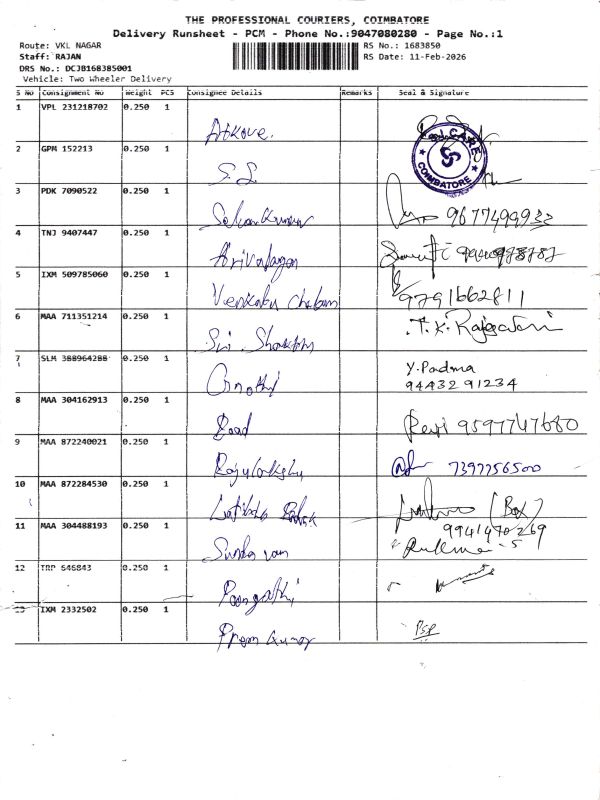 THE PROFESSIONAL COURIERS, COIMBATORE
Delivery Runsheet - PCM - Phone No.:9047080280 - Page No.:1
Route: VKL NAGAR
RS No.: 1683850
Staff: RAJAN
RS Date: 11-Feb-2026
DRS No.: DCJB168385001
Vehicle: Two Wheeler Delivery
S No Consignment No Weight PCS Consignee Details Remarks Seal & Signature
1 VPL 231218702 0.250 1
CARE
COIMBATORE
2 GPM 152213 0.250 1
S.S
3 PDK 7090522 0.250 1
Selvan Kumar 9677499933
4 TNJ 9407447 0.250 1
Arivalagan
5 IXM 509785060 0.250 1
9791662811
6 MAA 711351214 0.250 1
Sri Shakthi T.K. Rajeswari
7 SLM 388964288 0.250 1
Y.Padma
94432 91234
8 MAA 304162913 0.250 1
Revi 9597747680
9 MAA 872240021 0.250 1
Rajulakshmi 7397756500
10 MAA 872284530 0.250 1
(Box)
9941470269
11 MAA 304488193 0.250 1
Sundaram
12 TRP 646843 0.250 1
Poongothi
13 IXM 2332502 0.250 1
Prem Kumar PSP